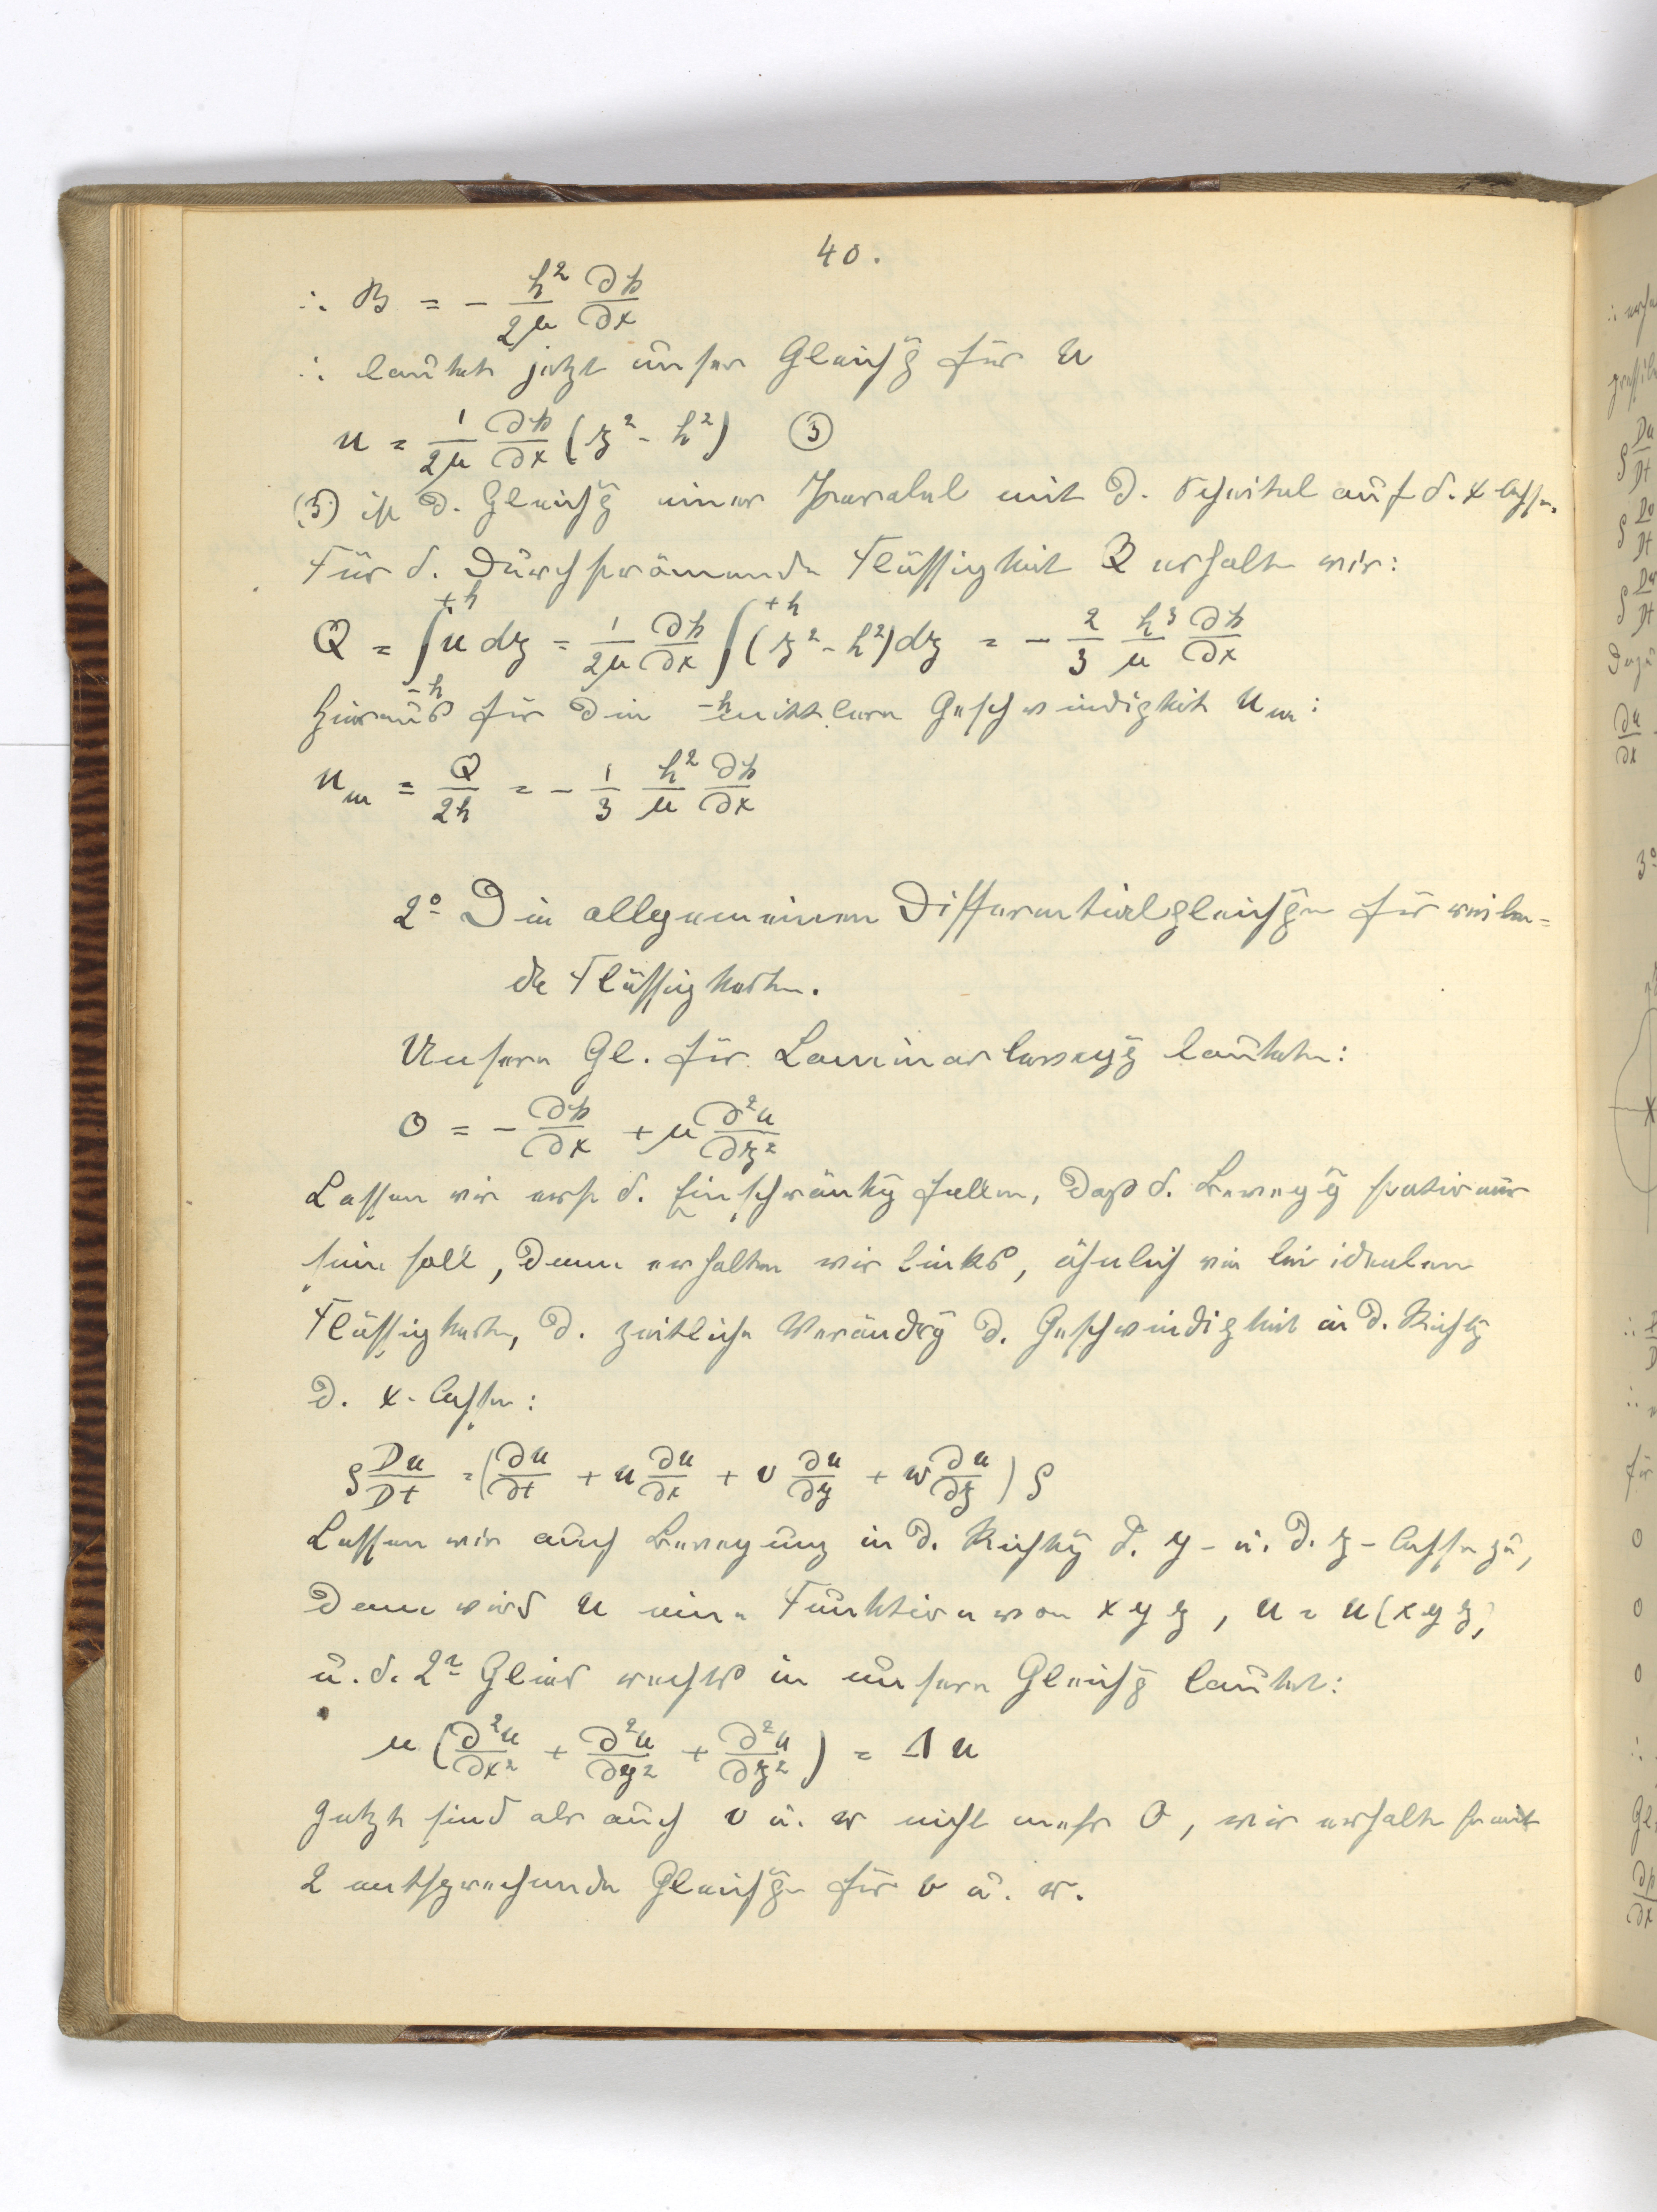 40.
∴ B = - h²/2μ ∂p/∂x
∴ lautet jetzt unser Gleichg für u
u = 1/2μ ∂p/∂x (z² - h²) ③
(3) ist d. Gleichg einer Parabel mit d. Scheitel auf d. x Achse.
Für d. durchströmende Flüssigkeit Q erhalt wir:
Q = ∫₋ₕ⁺ʰ u dz = 1/2μ ∂p/∂x ∫₋ₕ⁺ʰ (z² - h²) dz = - 2/3 h³/μ ∂p/∂x
Hieraus für die mittlere Geschwindigkeit uₘ:
uₘ = Q/2h = - 1/3 h²/μ ∂p/∂x
2° Die allgemeinen Differentialgleichgn für reiben=
de Flüssigkeiten.
Unsere Gl. für Laminarbewegg lautete:
0 = - ∂p/∂x + μ ∂²u/∂z²
Lassen wir erst d. Einschränkg fallen, dass d. Bewegg stationär
sein soll, dann erhalten wir links, ähnlich wie bei idealen
Flüssigkeiten, d. zeitliche Verändrg d. Geschwindigkeit in d. Richtg
d. x-Achse:
ρ Du/Dt = (∂u/∂t + u ∂u/∂x + v ∂u/∂y + w ∂u/∂z) ρ
Lassen wir auch Bewegung in d. Richtg d. y- u. d. z-Achse zu,
dann wird u eine Funktion von x y z, u = u(x y z)
u. d. 2te Glied rechts in unsere Gleichg lautet:
μ (∂²u/∂x² + ∂²u/∂y² + ∂²u/∂z²) = Δ u
Jetzt sind aber auch v u. w nicht mehr 0, wir erhalte somit
2 entsprechende Gleichgn für v u. w.